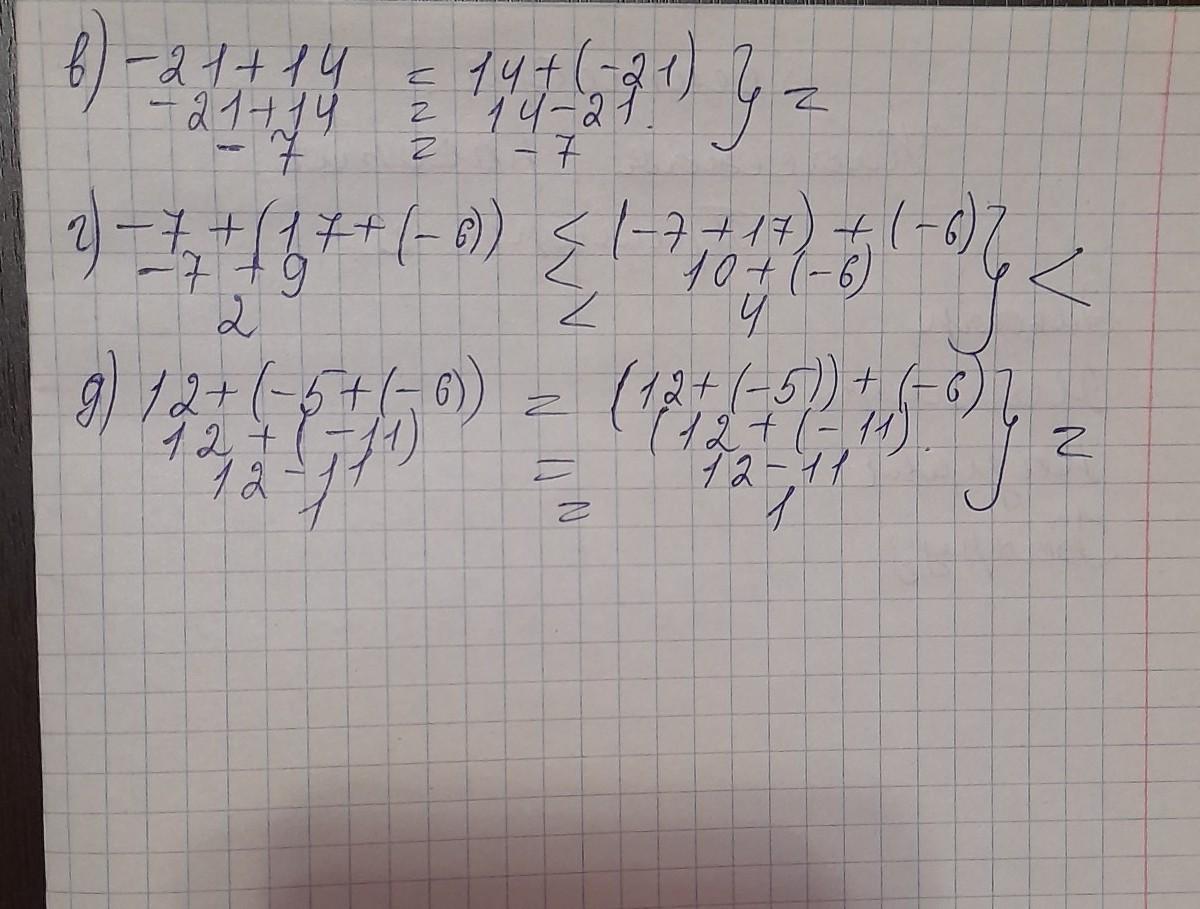 в) -21+14 = 14+(-21) } =
-21+14 = 14-21.
-7 = -7
г) -7+(17+(-6)) < (-7+17)+(-6) } <
-7+9 < 10+(-6)
2 < 4
д) 12+(-5+(-6)) = (12+(-5))+(-6) } =
12+(-11) (12+(-11).
12-11 = 12-11
1 = 1